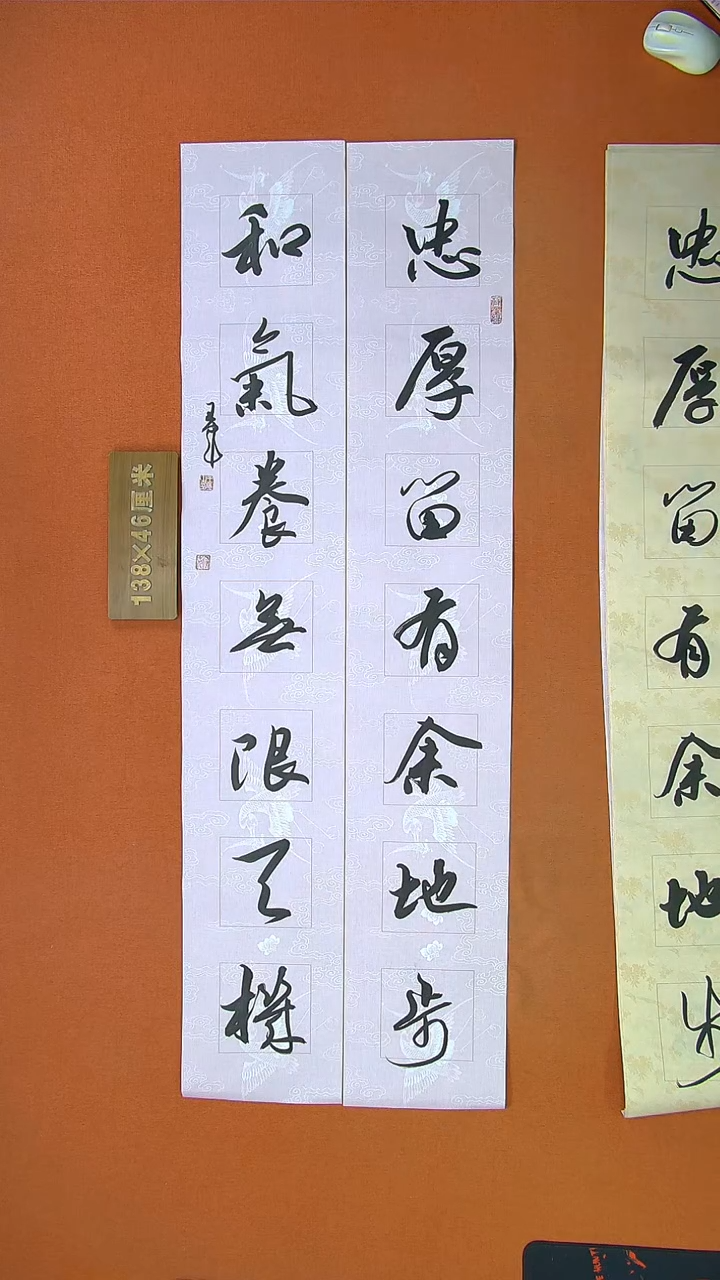 忠厚留有余地步
和氣養無限天機
138×46厘米
忠厚留有余地步